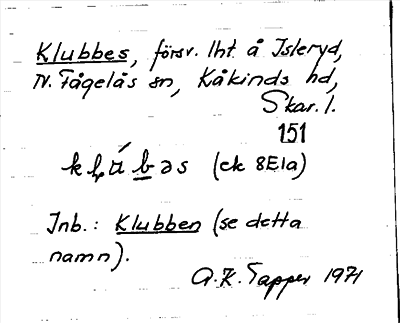 Klubbes, försv. lht å Isleryd,
N. Fågelås sn, Kåkinds hd,
Skar. l.
151
(ek 8E1a)
Inb.: Klubben (se detta
namn).
A. K. Tapper 1971